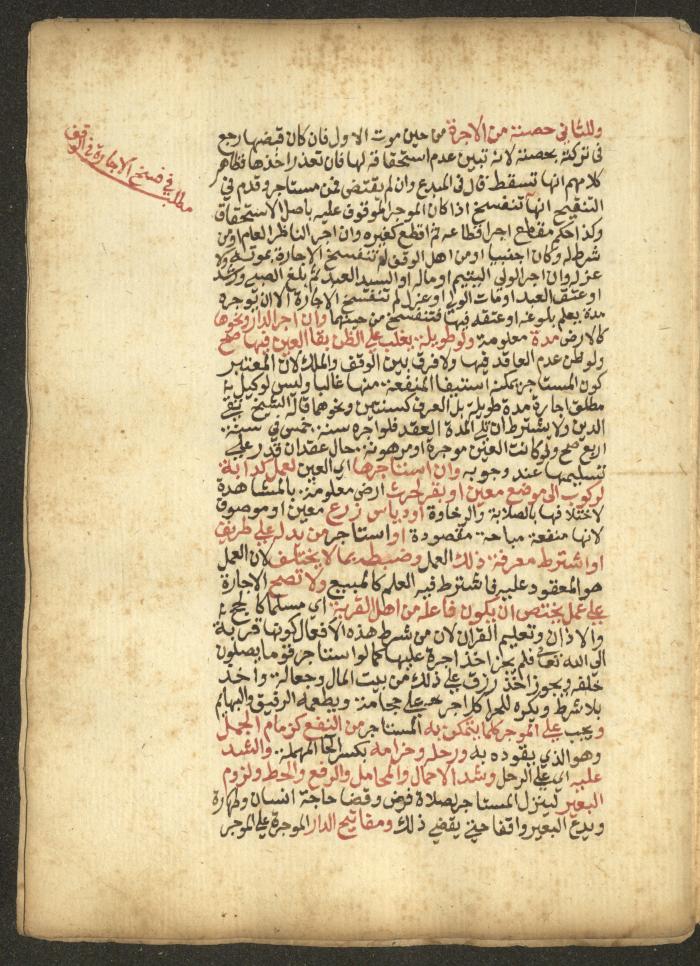 وللثاني حصته من الاجرة من حين موت الاول فان كان قبضها رجع
في تركته بحصته لانه تبين عدم استحقاقه لها فان تعذر اخذها فظاهر
كلامهم انها تسقط قال في المبدع وان لم يقتض فمن مستاجر وقدم في
التنقيح انها تنفسخ اذا كان الموجر الموقوف عليه باصل الاستحقاق
وكذا حكم مقطع اجر اقطاعه ثم اقطع لغيره وان اجر الناظر العام او من
شرط له وكان اجنبيا او من اهل الوقف لم تنفسخ الاجارة بموته ولا
عزله وان اجر الولي اليتيم او ماله او السيد العبد ثم بلغ الصبي ورشد
او عتق العبد او مات الولي او عزل لم تنفسخ الاجارة الا ان يوجره
مدة يعلم بلوغه او عتقه فيها فتنفسخ من حينهما وان اجر الدار ونحوها
كالارض مدة معلومة ولو طويلة يغلب على الظن بقا العين فيها صح
ولو ظن عدم العاقد فيها ولا فرق بين الوقف والملك لان المعتبر
كون المستاجر يمكنه استيفا المنفعة منها غالبا وليس لوكيل في
مطلق اجارة مدة طويلة بل العرف كسنتين ونحوهما قاله الشيخ تقي
الدين ولا يشترط ان تلي المدة العقد فلو اجره سنة خمس في سنة
اربع صح ولو كانت العين موجرة او مرهونة حال عقد ان قدر على
تسليمها عند وجوبه وان استاجرها اي العين لعمل كدابة
لركوب الى موضع معين او بقر لحرث ارض معلومة بالمشاهدة
لاختلافها بالصلابة والرخاوة او دياس زرع معين او موصوف
لانها منفعة مباحة مقصودة او استاجر من يدله على طريق
او اشترط معرفة ذلك العمل وضبطه بما لا يختلف لان العمل
هو المعقود عليه فاشترط فيه العلم كالمبيع ولا تصح الاجارة
على عمل يختص ان يكون فاعله من اهل القربة اي مسلما كالحج
والاذان وتعليم القران لان من شرط هذه الافعال كونها قربة
الى الله تعالى فلم يجز اخذ اجرة عليها كما لو استاجر قوما يصلون
خلفه ويجوز اخذ رزق على ذلك من بيت المال وجعالة واخذ
بلا شرط ويكره للحر اكل اجرة على حجامة ويطعمه الرقيق والبهايم
ويجب على الموجر كلما يتمكن به المستاجر من النفع كزمام الجمل
وهو الذي يقوده به ورحله وحزامه بكسر الحا المهملة والشد
عليه اي على الرحل وشد الاحمال والمحامل والرفع والحط ولزوم
البعير لينزل المستاجر لصلاة فرض وقضا حاجة انسان وطهارة
ويدع البعير واقفا حتى يقضي ذلك ومفاتيح الدار الموجرة على الموجر
مطلب في فسخ الاجارة في الوقف